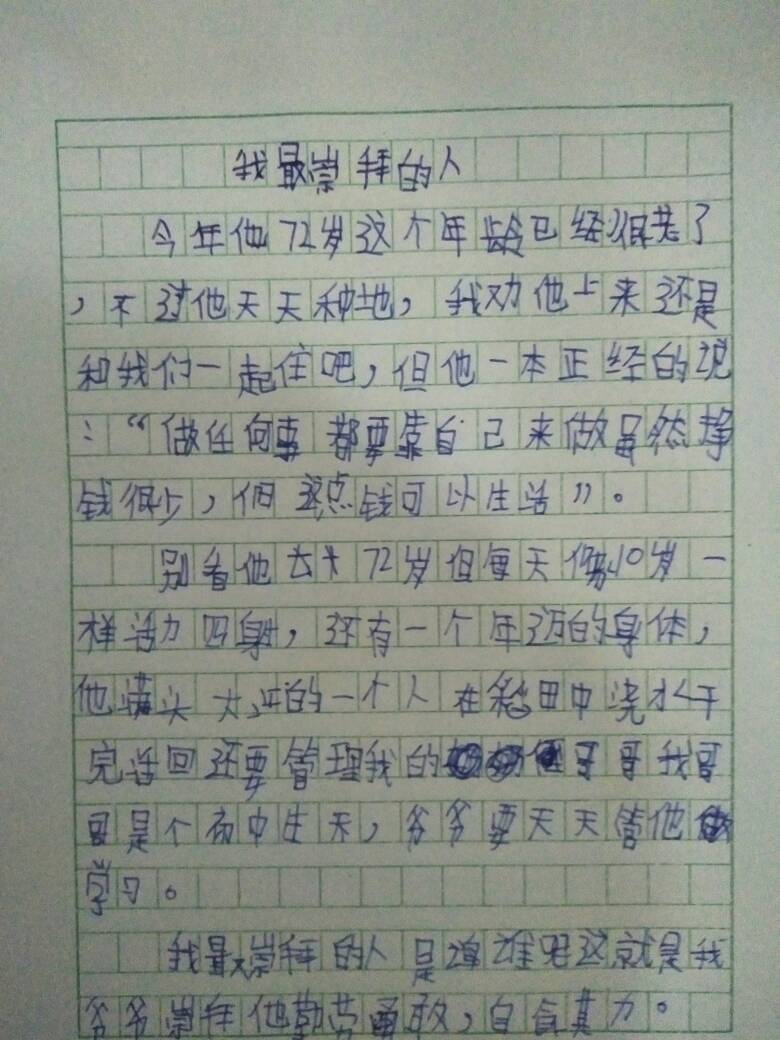 我最崇拜的人
今年他72岁这个年龄已经很老了
，不过他天天种地，我劝他上来还是
和我们一起住吧，但他一本正经的说
：“做任何事都要靠自己来做虽然挣
钱很少，但这点钱可以生活”。
别看他 72岁但每天像10岁一
样活力四射，还有一个年迈的身体，
他满头大汗的一个人在稻田中浇水干
完活回还要管理我的哥哥我哥
哥是个初中生天，爷爷要天天管他
学习。
我最崇拜的人是谁呢这就是我
爷爷崇拜他勤劳勇敢，自食其力。